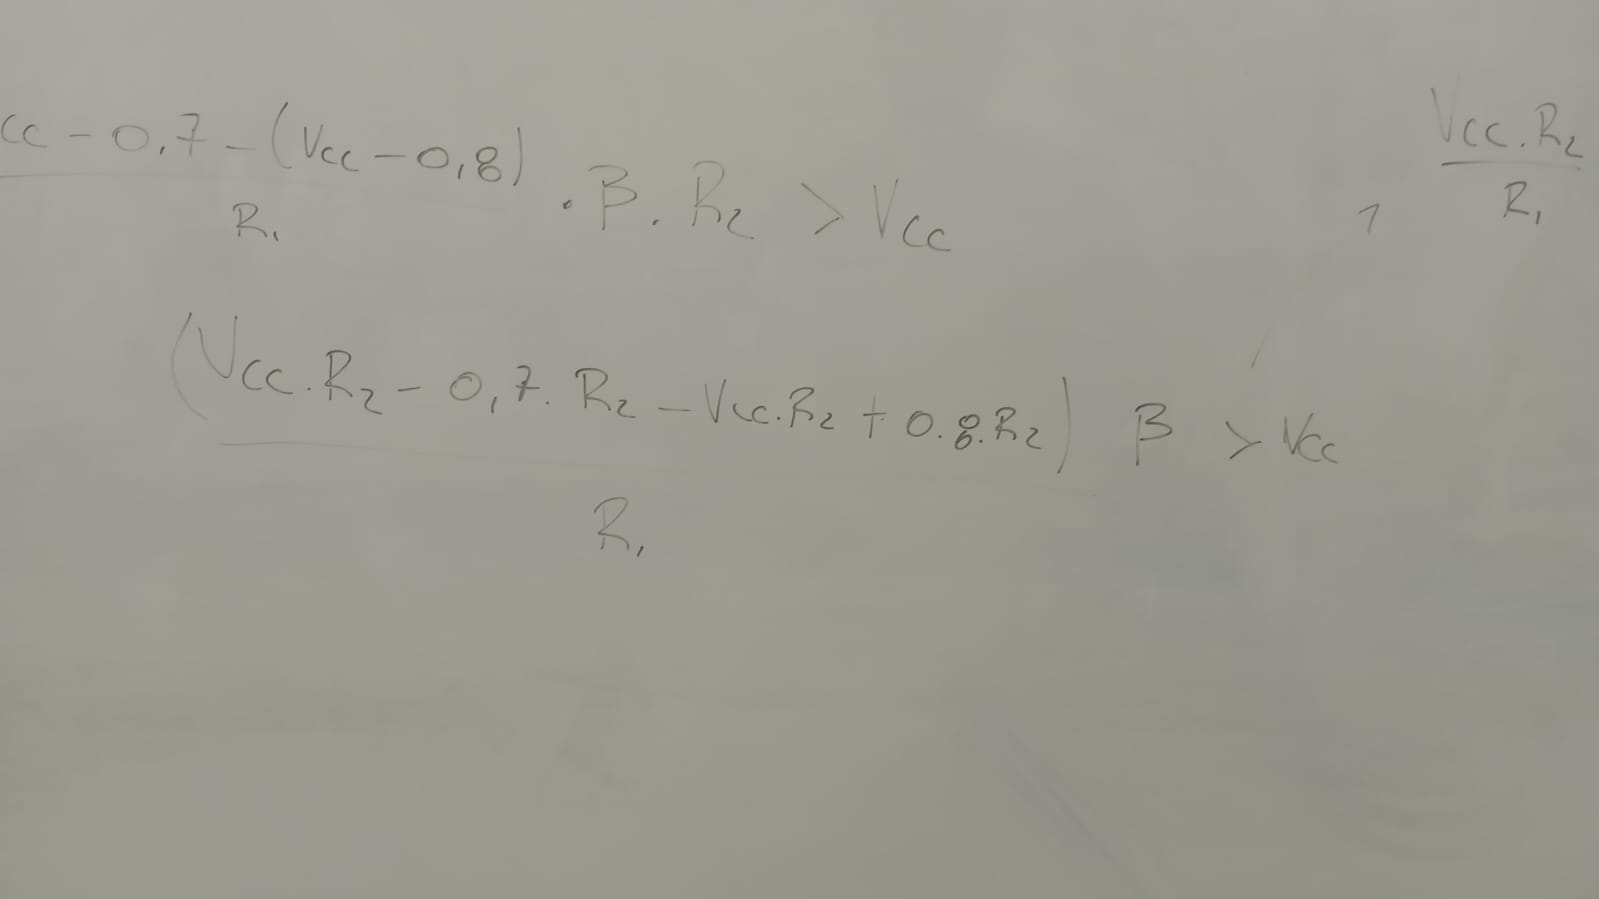 cc - 0,7 - (Vcc - 0,8)
R₁
. β . R₂ > Vcc
1
Vcc . R₂
R₁
(Vcc . R₂ - 0,7 . R₂ - Vcc . R₂ + 0.8 . R₂) β > Vcc
R₁